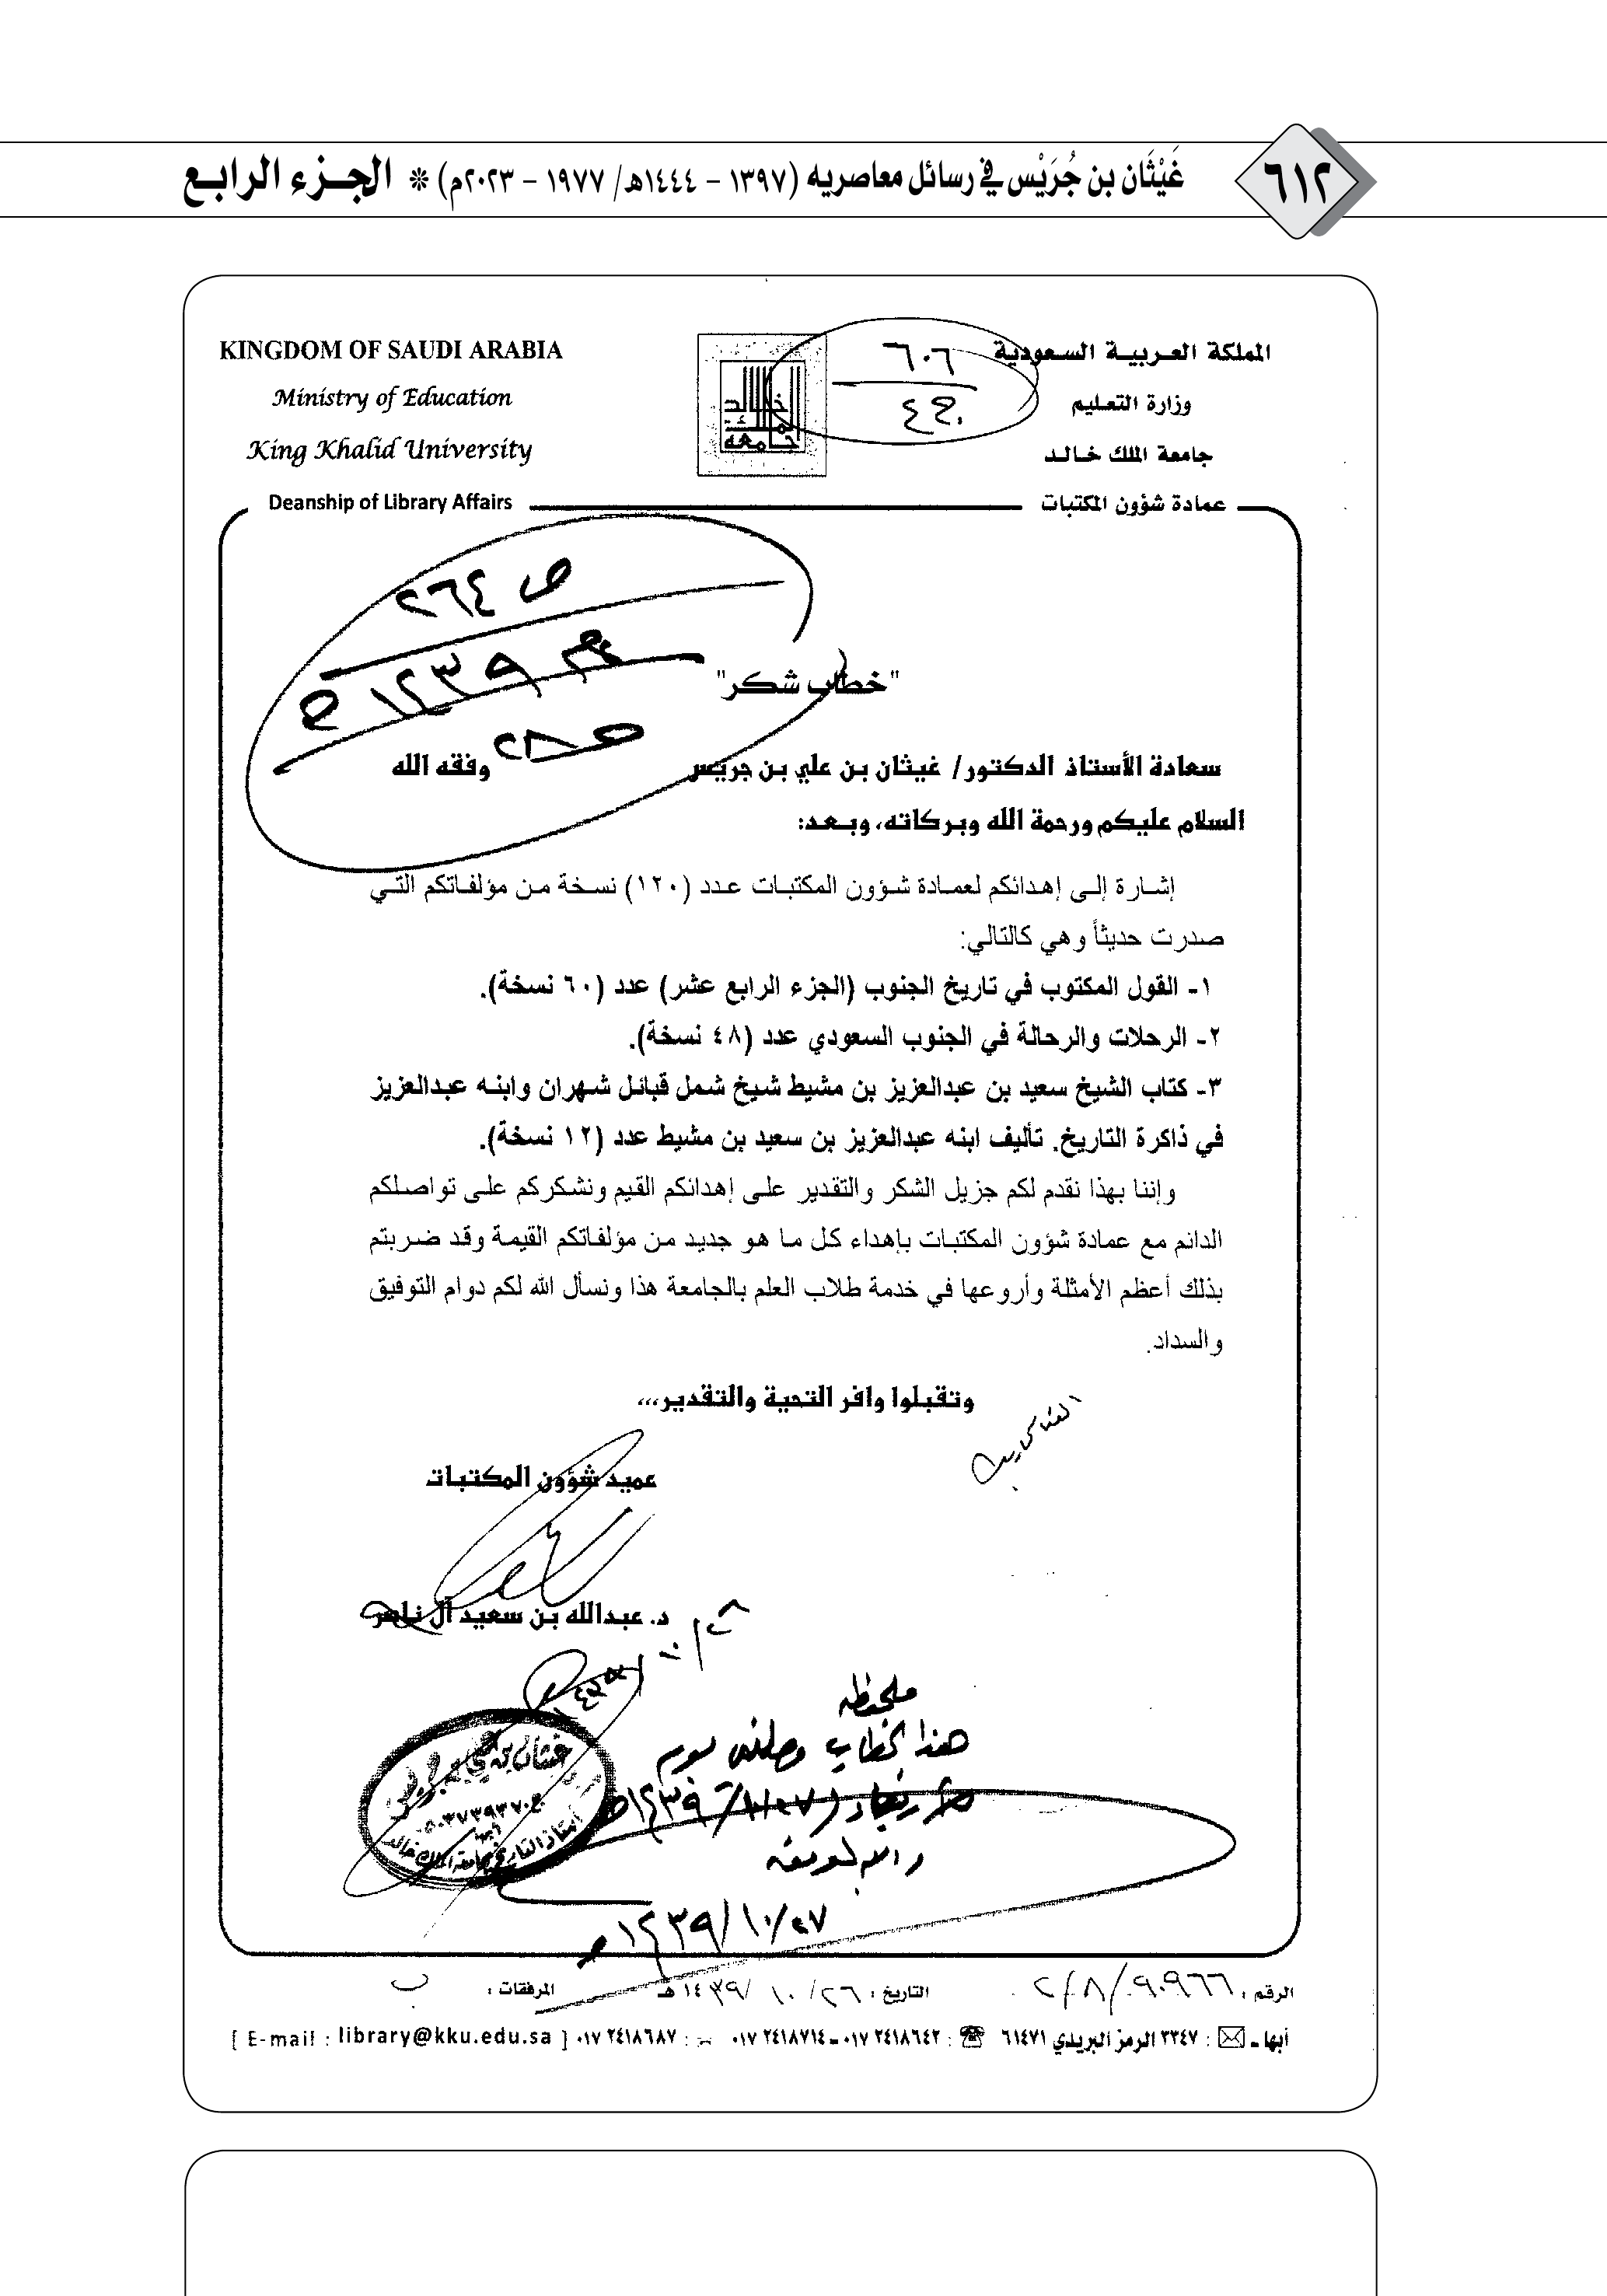 ٦١٢
غَيْثَان بن جُرَيْس في رسائل معاصريه (١٣٩٧ – ١٤٤٤هـ/ ١٩٧٧ – ٢٠٢٣م) * الجزء الرابع
المملكة العربية السعودية
وزارة التعليم
جامعة الملك خالد
عمادة شؤون المكتبات
٦٠٦
جامعة الملك خالد
KINGDOM OF SAUDI ARABIA
Ministry of Education
King Khalid University
Deanship of Library Affairs
ص ٢٦٤
"خطاب شكر"
سعادة الأستاذ الدكتور/ غيثان بن علي بن جريس وفقه الله
السلام عليكم ورحمة الله وبركاته، وبعد:
إشارة إلى إهدائكم لعمادة شؤون المكتبات عدد (١٢٠) نسخة من مؤلفاتكم التي
صدرت حديثاً وهي كالتالي:
١- القول المكتوب في تاريخ الجنوب (الجزء الرابع عشر) عدد (٦٠ نسخة).
٢- الرحلات والرحالة في الجنوب السعودي عدد (٤٨ نسخة).
٣- كتاب الشيخ سعيد بن عبدالعزيز بن مشيط شيخ شمل قبائل شهران وابنه عبدالعزيز
في ذاكرة التاريخ. تأليف ابنه عبدالعزيز بن سعيد بن مشيط عدد (١٢ نسخة).
وإننا بهذا نقدم لكم جزيل الشكر والتقدير على إهدائكم القيم ونشكركم على تواصلكم
الدائم مع عمادة شؤون المكتبات بإهداء كل ما هو جديد من مؤلفاتكم القيمة وقد ضربتم
بذلك أعظم الأمثلة وأروعها في خدمة طلاب العلم بالجامعة هذا ونسأل الله لكم دوام التوفيق
والسداد.
وتقبلوا وافر التحية والتقدير،،،
عميد شؤون المكتبات
د. عبدالله بن سعيد آل ناصر
ملحظة
هذا الخطاب وصلني يوم
١٤٣٩/١٠/٢٧
أستاذ التاريخ بجامعة الملك خالد
١٤٣٩/١٠/٢٧هـ
الرقم : ٢/٨/٩٠٩٦٦ التاريخ : ٢٦/ ١٠ /١٤٣٩هـ المرفقات :
أبها ـ : ٣٣٤٧ الرمز البريدي ٦١٤٧١ : ٠١٧ ٢٤١٨٦٤٢ ـ ٠١٧ ٢٤١٨٧١٤ : ٠١٧ ٢٤١٨٦٨٧ [ E-mail : library@kku.edu.sa ]